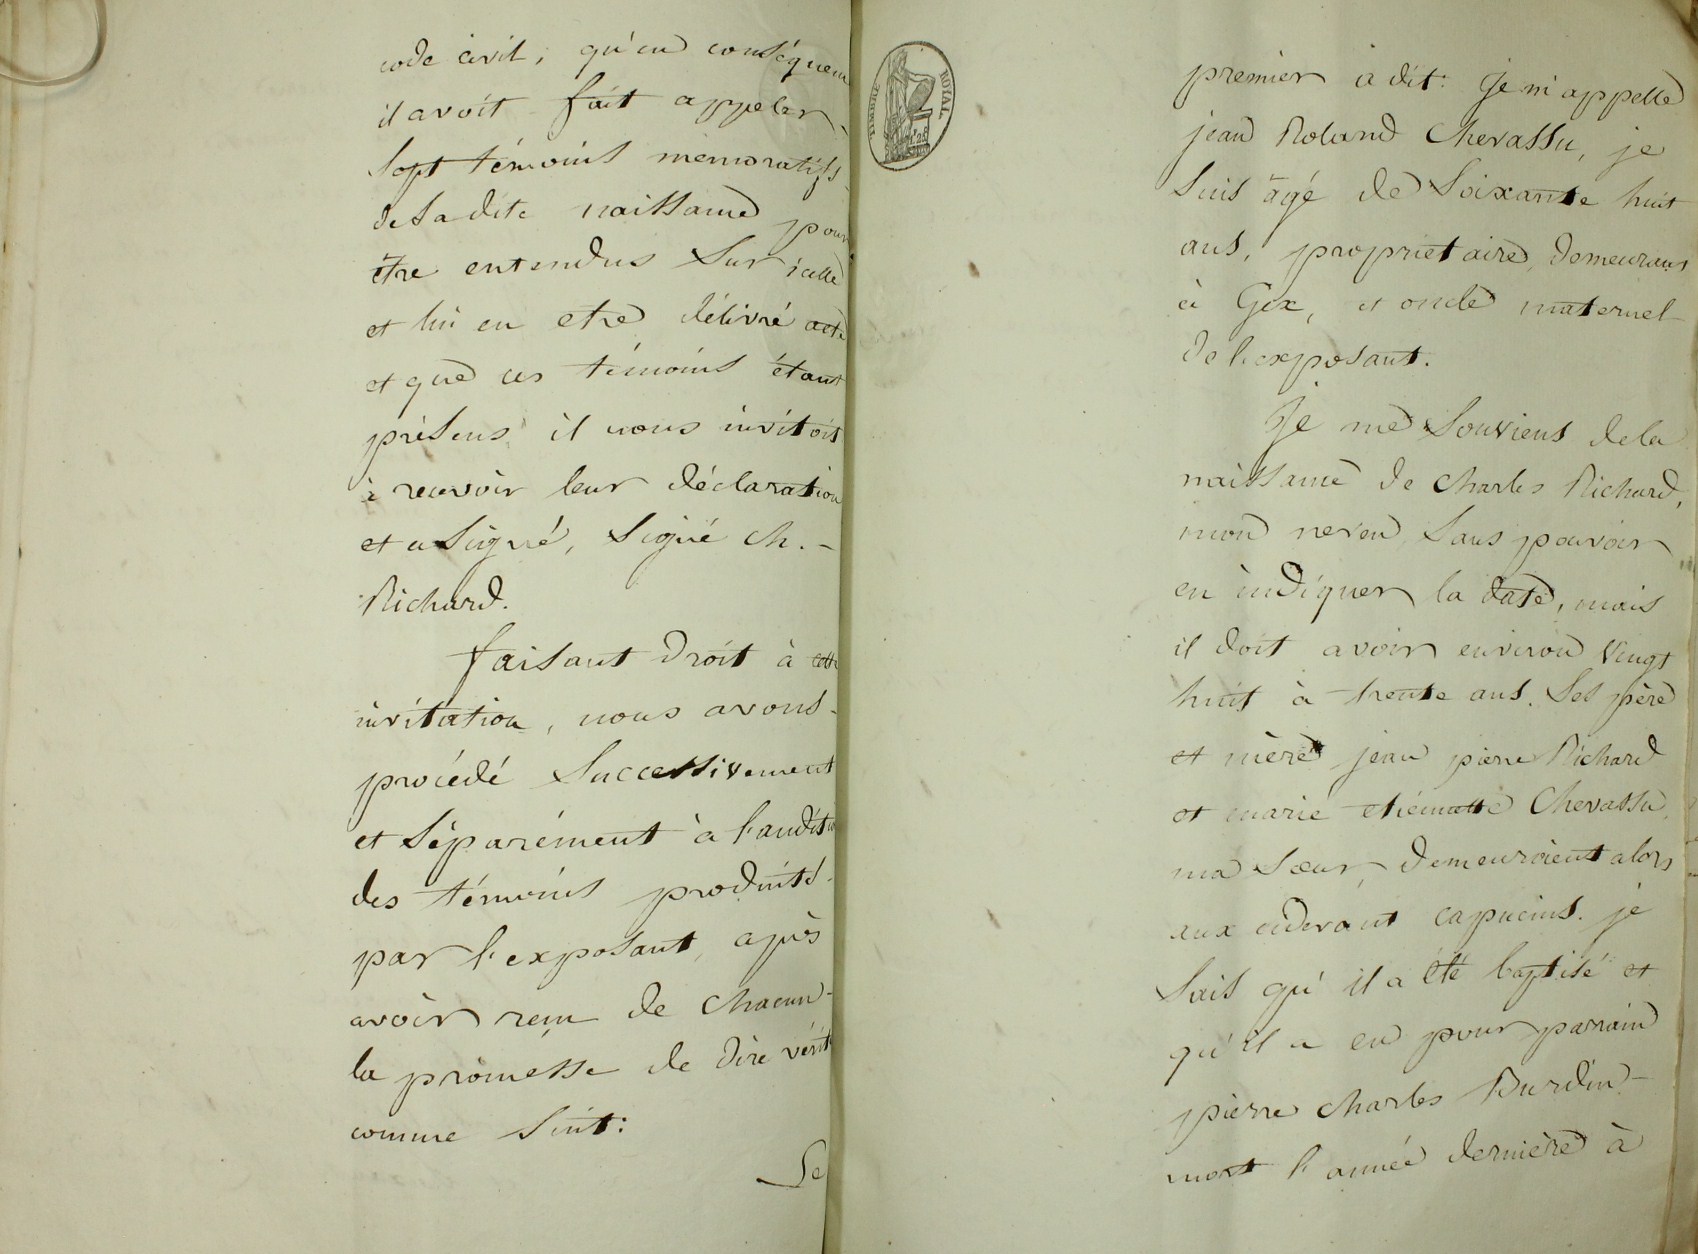 code civil, qu'en conséquence
il avoit fait appeler
sept témoins mémoratifs
de sa dite naissance pour
être entendus sur icelle
et lui en etre délivré acte
et que ces témoins étant
présens il nous invitoit
à recevoir leur déclaration
et a signé, signé Ch. -
Richard.
faisant droit à cette
invitation, nous avons
procédé successivement
et séparément à l'audition
des témoins produits
par l'exposant, après
avoir reçu de chacun
la promesse de dire vérité
comme suit:
Le
TIMBRE ROYAL
premier a dit: Je m'appelle
jean Roland Chevassu, je
suis âgé de soixante huit
ans, propriétaire, demeurant
à Gex, et oncle maternel
de l'exposant.
Je me souviens de la
naissance de Charles Richard,
mon neveu sans pouvoir
en indiquer la date, mais
il doit avoir environ vingt
huit à trente ans. Ses père
et mère jean pierre Richard
et marie etiennette Chevassu,
ma sœur, demeuroient alors
aux cidevant capucins. je
sais qu'il a été baptisé et
qu'il a eu pour parrain
pierre Charles Burdin
mort l'année dernière à